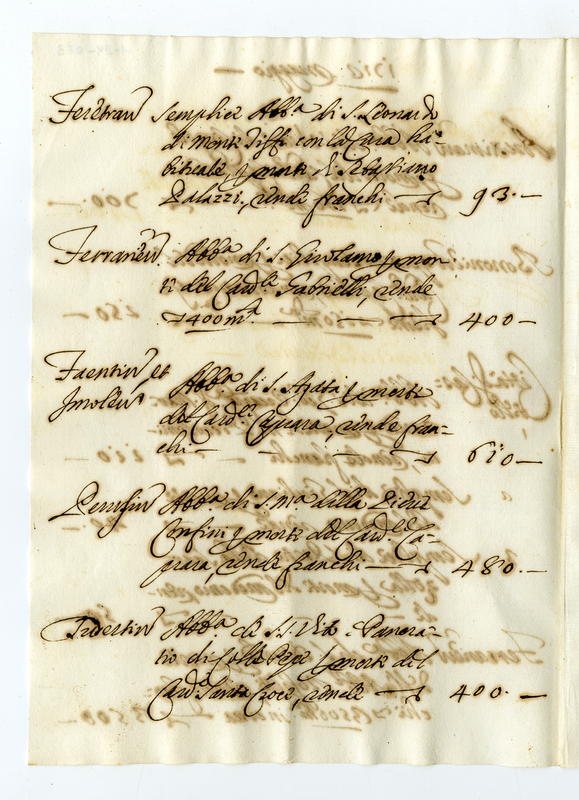 Feretran Semplice Abb.a di S. Leonardo
di monte Tiffi con la Cura ha-
bituale, p morte di Sebastiano
Palazzi, rende franchi — 93 —
Ferranen Abb.a di S. Girolamo p mor-
te del Card.le Gabrielli, rende
400 m.ta — 400 —
Faentin et Abb.a di S. Agata p morte
Imolen del Card.le Caprara, rende fran-
chi — 610 —
Perusin Abb.a di S. M.a della Pieve
Confini p morte del Card.le Ca-
prara, rende franchi — 480 —
Tudertin Abb.a di S.S. Vito e Pancra-
tio di Colle Pepe p morte del
Card. Santa Croce, rende — 400 —